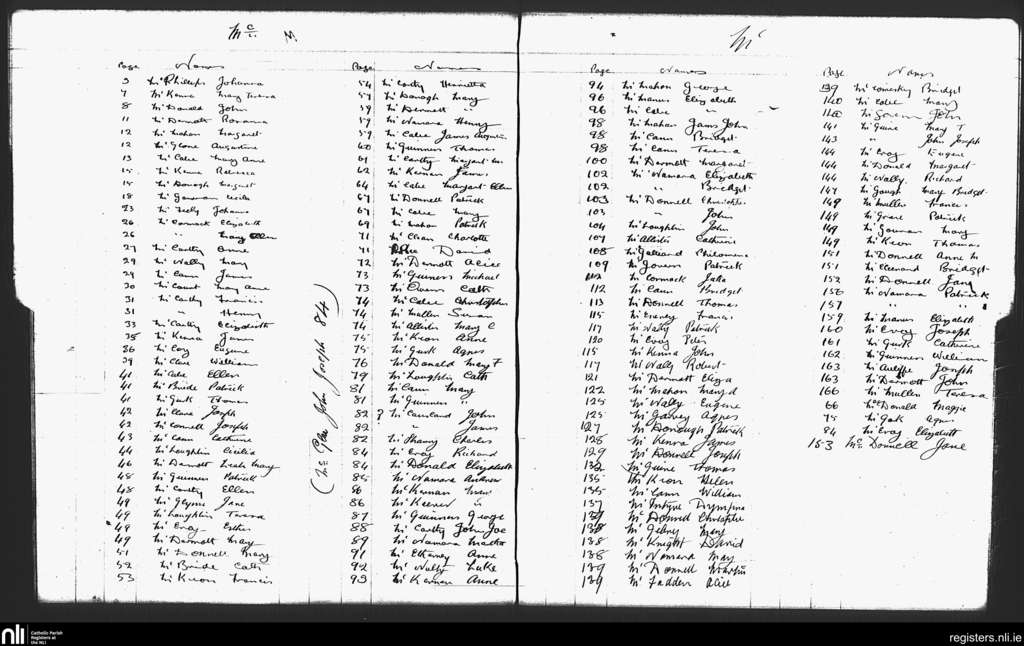 Mc M.
Page Names
3 Mc Phillips Johanna
7 Mc Kenna Mary Teresa
8 Mc Donald John
11 Mc Dermott Rosanna
12 Mc Mahon Margaret
12 Mc Glone Augustine
13 Mc Cabe Mary Anne
15 Mc Kenna Rebecca
15 Mc Donagh Margaret
18 Mc Gowran Cecilia
23 Mc Johanna
26 Mc Cormack Elizabeth
26 " Mary Ellen
27 Mc Carthy Anne
29 Mc Nally Mary
29 Mc Cann James
30 Mc Mary Anne
31 Mc Carthy Francis
31 " Henry
33 Mc Carthy Elizabeth
35 Mc Kenna James
36 Mc Coy Eugene
39 Mc Clare William
41 Mc Cabe Ellen
41 Mc Bride Patrick
41 Mc Gurk Thomas
42 Mc Joseph
42 Mc Connell Joseph
43 Mc Cann Catherine
44 Mc Loughlin Cecilia
46 Mc Dermott Mary
48 Mc Guinness Patrick
48 Mc Carthy Ellen
49 Mc Glynne Jane
49 Mc Loughlin Teresa
49 Mc Evoy Esther
49 Mc Dermott Mary
51 Mc Donnell Mary
52 Mc Bride Cath
53 Mc Keon Francis
(Mc Glue John Joseph 84)
Page Names
54 Mc Carthy Henrietta
57 Mc Donagh Mary
59 Mc Dermott "
59 Mc Namara Henry
59 Mc Cabe James
60 Mc Guinness Thomas
61 Mc Carthy Margaret
62 Mc Kiernan James
64 Mc Cabe Margaret Ellen
67 Mc Donnell Patrick
67 Mc Cabe Mary
69 Mc Mahon Patrick
71 Mc Clean Charlotte
71 David
72 Mc Dermott Alice
73 Mc Guiness Michael
73 Mc Owens Cath
74 Mc Cabe Christopher
74 Mc Mullen Susan
74 Mc Allister Mary C
75 Mc Keon Anne
75 Mc Gurk Agnes
76 Mc Donald Mary F
79 Mc Loughlin Cath
81 Mc Cann Mary
81 Mc Guinness "
82 ? Mc Causland John
82 " James
82 Mc Shany Charles
84 Mc Evoy Richard
84 Mc Donald Elizabeth
85 Mc Namara Andrew
86 Mc Kiernan
86 Mc Keever "
87 Mc Guinness George
88 Mc Carthy John Joe
89 Mc Namara Martha
91 Mc Elhaney Anne
92 Mc Nulty Luke
93 Mc Kiernan Anne
Mc
Page Names
94 Mc Mahon George
96 Mc Manus Elizabeth
96 Mc Cabe "
98 Mc Mahon James John
98 Mc Cann Bridget
98 Mc Cann Teresa
100 Mc Dermott Margaret
102 Mc Namara Elizabeth
102 " Bridget
103 Mc Donnell
103 " John
104 Mc Loughlin John
107 Mc Allister Catherine
108 Mc Philomena
109 Mc Govern Patrick
112 Mc Cormack Julia
112 Mc Cann Bridget
113 Mc Donnell Thomas
115 Mc Francis
117 Mc Nally Patrick
120 Mc Evoy Peter
115 Mc Kenna John
117 Mc Nally Robert
121 Mc Dermott Eliza
122 Mc Mahon Mary J
125 Mc Nally Eugene
125 Mc Garvey Agnes
127 Mc Donough Patrick
128 Mc Kenna James
129 Mc Donnell Joseph
132 Mc Guire Thomas
135 Mc Keon Helen
135 Mc Cann William
137 Mc Intyre Dympna
137 Mc Donnell Christopher
138 Mc Gilney Mary
138 Mc Knight David
138 Mc Namara Mary
139 Mc Donnell
139 Mc Fadden Alice
Page Names
139 Mc Comesky Bridget
140 Mc Cabe Mary
140 Mc Govern John
141 Mc Guire Mary T
143 " John Joseph
144 Mc Evoy Eugene
144 Mc Donald Margaret
144 Mc Nally Richard
147 Mc Gough Mary Bridget
149 Mc Mullen Francis
149 Mc Guire Patrick
149 Mc Gowran Mary
149 Mc Keon Thomas
151 Mc Donnell Anne M
151 Mc Bridget
152 Mc Donnell Jane
156 Mc Namara Patrick
157 " "
159 Mc Manus Elizabeth
160 Mc Evoy Joseph
161 Mc Gurk Catherine
162 Mc Guinness William
163 Mc Auliffe Joseph
163 Mc Dermott John
166 Mc Mullen Teresa
66 Mc Donald Maggie
75 Mc Gurk Agnes
84 Mc Evoy Elizabeth
153 Mc Donnell Jane
nli
Catholic Parish
Registers at
the NLI
registers.nli.ie